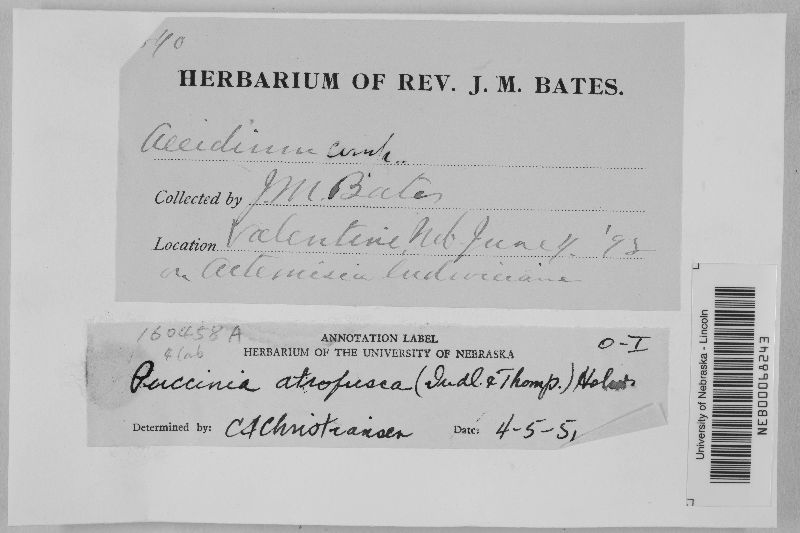 HERBARIUM OF REV. J. M. BATES.
Aecidium
Collected by J. M. Bates
Location Valentine, Neb June 4. '93
on Artemisia ludoviciana
160458 A
ANNOTATION LABEL
HERBARIUM OF THE UNIVERSITY OF NEBRASKA
O-I
Puccinia atrofusca (Dudl. & Thomp.) Holw.
Determined by: C A Christiansen Date: 4-5-51
University of Nebraska - Lincoln
NEB00068243